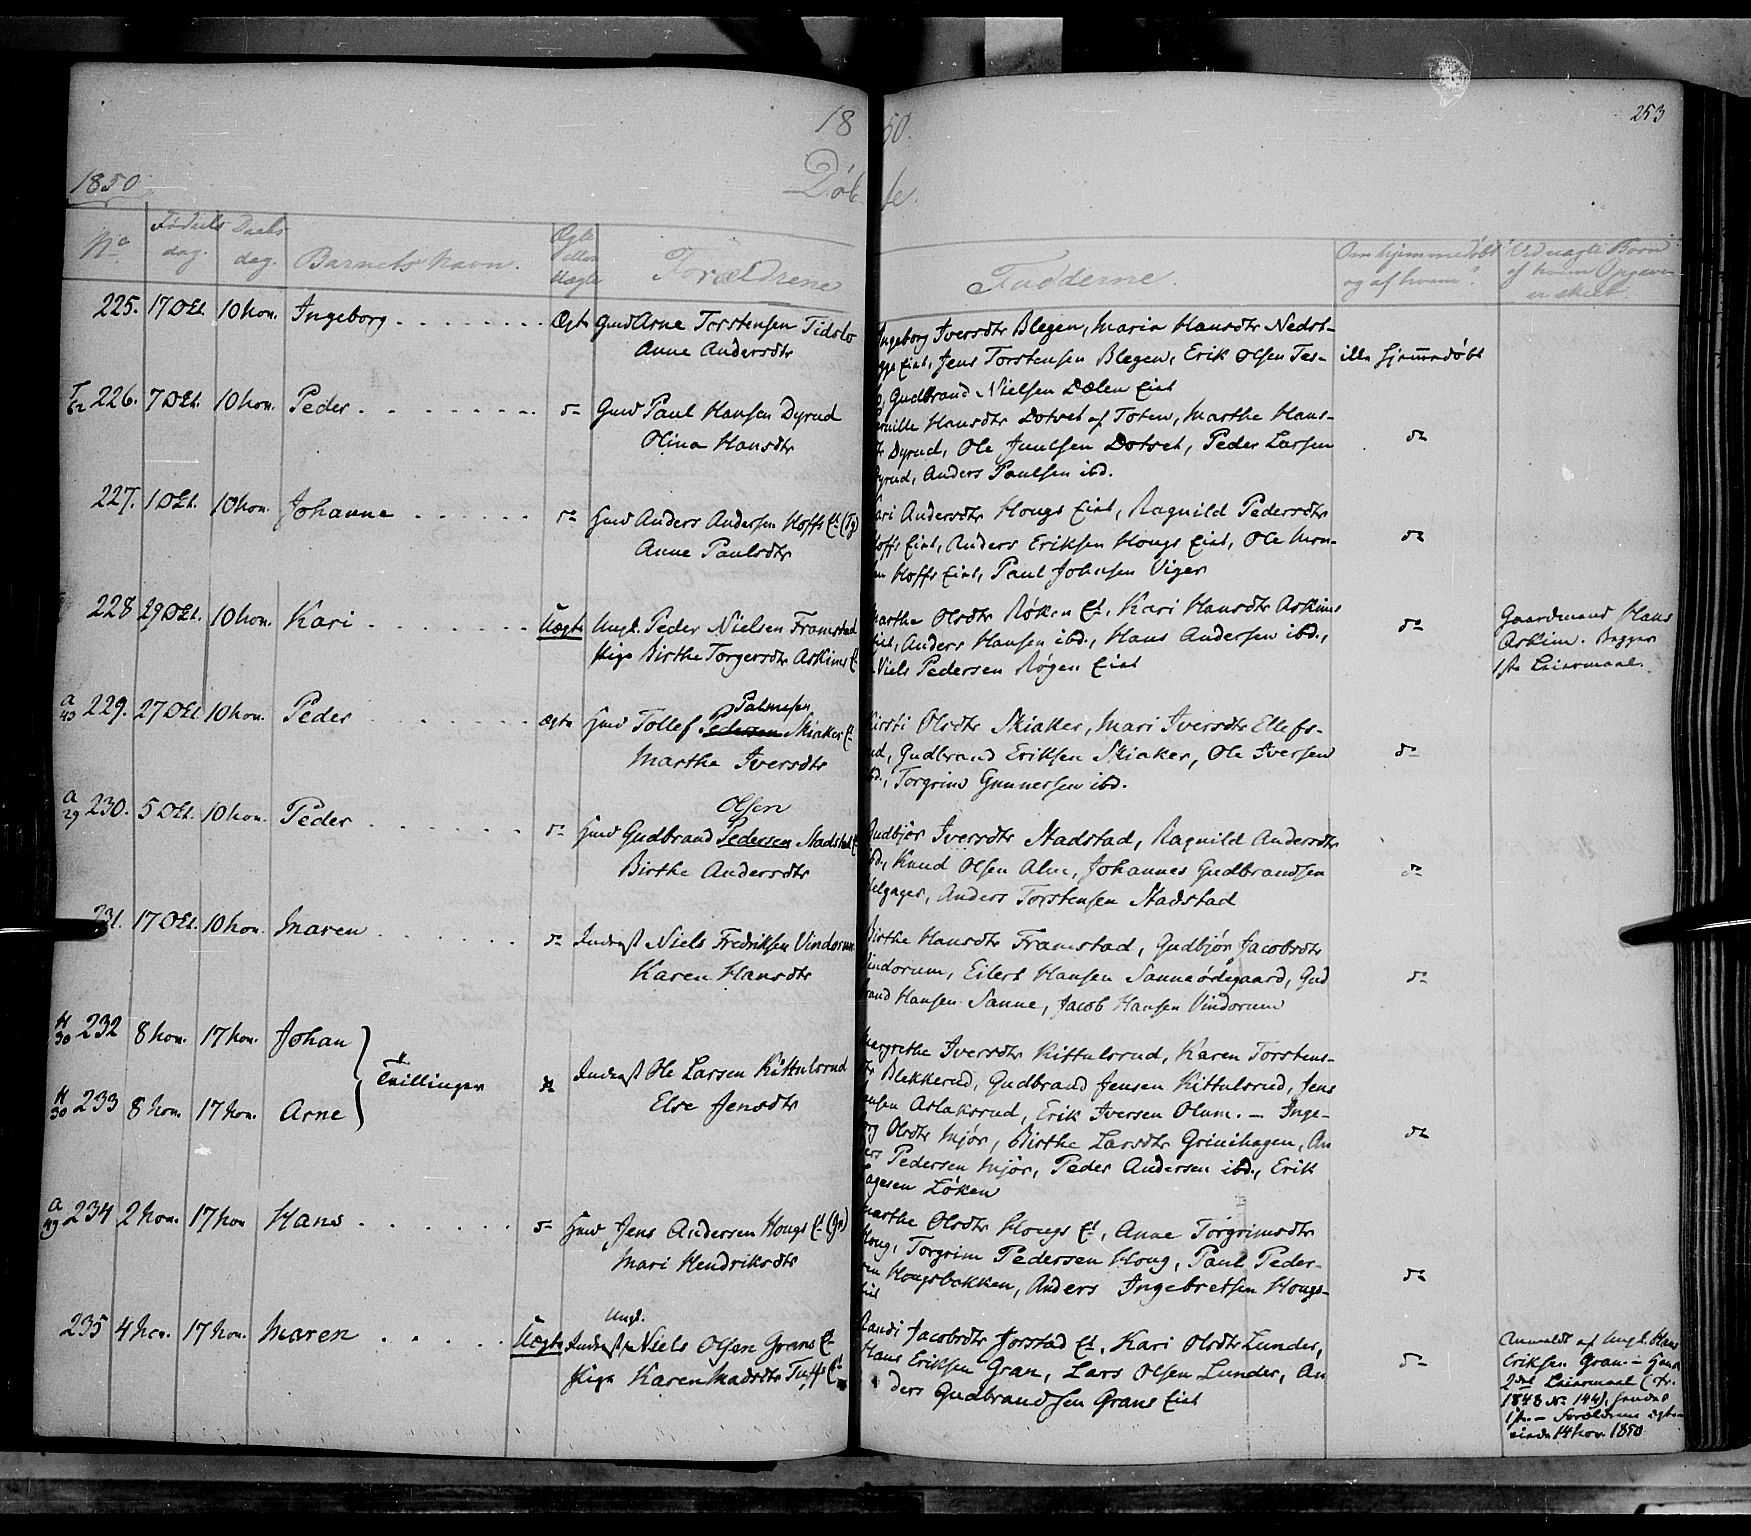 18 50.
253
1850
Døb te.
No Fødsels dag. Daabs dag. Barnets Navn. Ægte eller Uægte Forældrene Fadderne. Om hjemmedøbt og af hvem? Ved uægte Børn af hvem Opgaven er skeet.
225. 17 Oct. 10 Nov. Ingeborg Ægte Gmd Arne Torstensen Tidslo
Anne Andersdtr
Ingeborg Iversdtr Blegen, Maria Hansdtr Nedst-
Eiet, Jens Torstensen Blegen, Erik Olsen Tes-
Gudbrand Nielsen Dælen Eiet
ille hjemmedøbt
226. 7 Oct. 10 Nov. Peder do Gmd Paul Hansen Dyrud
Olina Hansdtr
Pernille Hansdtr Dotset af Toten, Marthe Hans-
dtr Dyrud, Ole Juulsen Dotset, Peder Larsen
Dyrud, Anders Paulsen ibd.
do
227. 1 Oct. 10 Nov. Johanne do Gmd Anders Andersen Hoffs Et
Anne Paulsdtr
Kari Andersdtr Hougs Eiet, Ragnild Pedersdtr
Hoffs Eiet, Anders Eriksen Hougs Eiet, Ole Mon-
sen Hoffs Eiet, Paul Johnsen Viger
do
228 29 Oct. 10 Nov. Kari Uægte Ungk. Peder Nielsen Framstad
Pige Birthe Torgersdtr Askims Et
Marthe Olsdtr Røken Et, Kari Hansdtr Askims
Eiet, Anders Hansen ibd., Hans Andersen ibd.,
Niels Pedersen Røgen Eiet
do
Gaardmand Hans
Askim. Begges
1ste Leiermaal.
a 43 229. 27 Oct 10 Nov. Peder ægte Gmd Tollef Pedersen Palmesen Skiaker Et
Marthe Iversdtr
Kirsti Olsdtr Skiaker, Mari Iversdtr Ellefs-
rud, Gudbrand Eriksen Skiaker, Ole Iversen
ibd., Torgrim Gunnersen ibd.
do
a 29 230. 5 Oct. 10 Nov. Peder do Gmd Gudbrand Pedersen Olsen Stadstad Et
Birthe Andersdtr
Gudbjør Iversdtr Stadstad, Ragnild Andersdtr
ibd., Knud Olsen Alm, Johannes Gudbrandsen
Helgager, Anders Torstensen Stadstad
do
231. 17 Oct. 10 Nov. Maren do Inderst Niels Fredriksen Vindorum
Karen Hansdtr
Birthe Hansdtr Framstad, Gudbjør Jacobsdtr
Vindorum, Eilert Hansen Sanneødegaard, Gud
brand Hansen Sanne, Jacob Hansen Vindorum
do
H 30 232 8 Nov. 17 Nov. Johan
Tvillinger
H 30 233 8 Nov. 17 Nov. Arne
do Inderst Ole Larsen Kittulsrud
Else Jensdtr
Margrethe Iversdtr Kittulsrud, Karen Torstens-
dtr Blekkerud, Gudbrand Jensen Kittulsrud, Jens
Jensen Aslaksrud, Erik Iversen Olum. — Inge-
borg Olsdtr Mjør, Birthe Larsdtr Grinihagen, An
ders Pedersen Mjør, Peder Andersen ibd., Erik
Løken
do
a 49 234 2 Nov. 17 Nov Hans do Gmd Jens Andersen Hougs Et (Gr)
Mari Hendriksdtr
Marthe Olsdtr Hougs Et, Anne Torgrimsdtr
Houg, Torgrim Pedersen Houg, Paul Peder-
sen Hougsbakken, Anders Ingebretsen Hougs-
eiet
do
235 4 Nov. 17 Nov. Maren Uægte Inderst Ungk. Niels Olsen Grans Et
Pige Karen Madsdtr Tufts Et
Randi Jacobsdtr Jorstad Et, Kari Olsdtr Lunder,
Hans Eriksen Gran, Lars Olsen Lunder, An
ders Gudbrandsen Grans Eiet
do
Anmeldt af Ungk. Hans
Eriksen Gran. — Hans
2det Leiermaal (fr.
1848 No 144), hendes
1ste. — Forældrene ægte-
viede 14 Nov. 1850